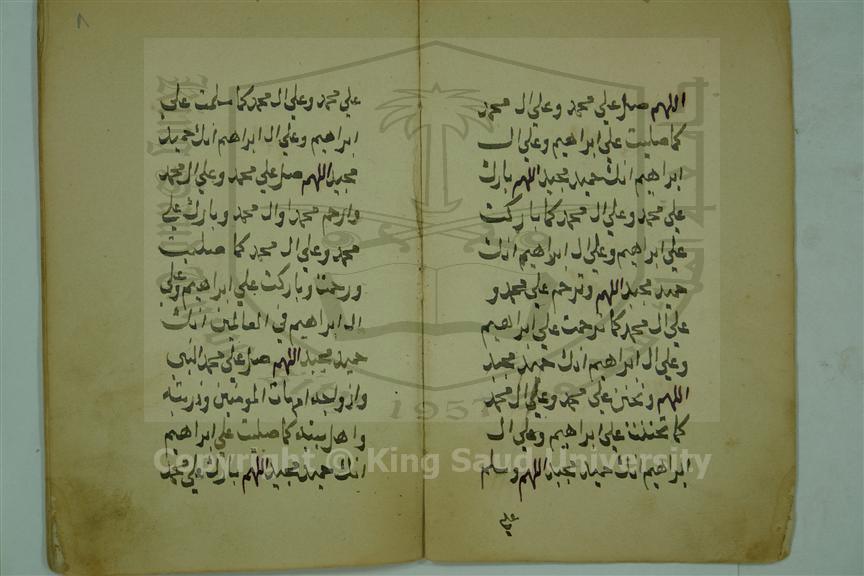 اللهم صل علي محمد وعلي ال محمد
كما صليت علي ابراهيم وعلي ال
ابراهيم انك حميد مجيد اللهم بارك
علي محمد وعلي ال محمد كما باركت
علي ابراهيم وعلي ال ابراهيم انك
حميد مجيد اللهم وترحم علي محمد و
علي ال محمد كما ترحمت علي ابراهيم
وعلي ال ابراهيم انك حميد مجيد
اللهم وتحنن علي محمد وعلي ال محمد
كما تحننت علي ابراهيم وعلي ال
ابراهيم انك حميد مجيد اللهم وسلم
علي
٨
علي محمد وعلي ال محمد كما سلمت علي
ابراهيم وعلي ال ابراهيم انك حميد
مجيد اللهم صل علي محمد وعلي ال محمد
وارحم محمدا وال محمد وبارك علي
محمد وعلي ال محمد كما صليت
ورحمت وباركت علي ابراهيم وعلي
ال ابراهيم في العالمين انك
حميد مجيد اللهم صل علي محمد النبي
وازواجه امهات المومنين وذريته
واهل بيته كما صليت علي ابراهيم
انك حميد مجيد اللهم بارك علي محمد
1957
Copyright © King Saud University